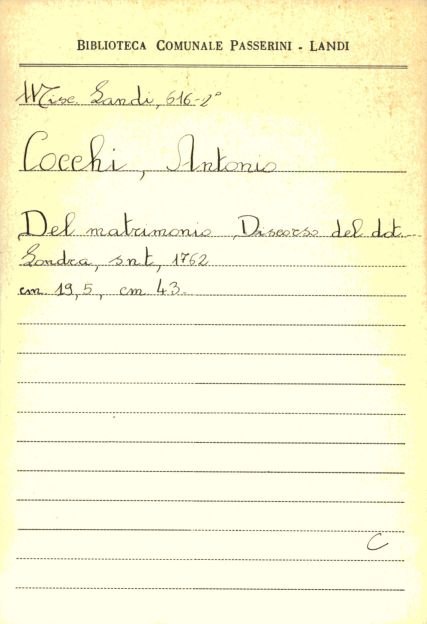 BIBLIOTECA COMUNALE PASSERINI - LANDI
Misc. Landi, 616-2°
Cocchi, Antonio
Del matrimonio, Discorso del dot...
Londra, snt, 1762
cm. 19,5, cm 43.
C